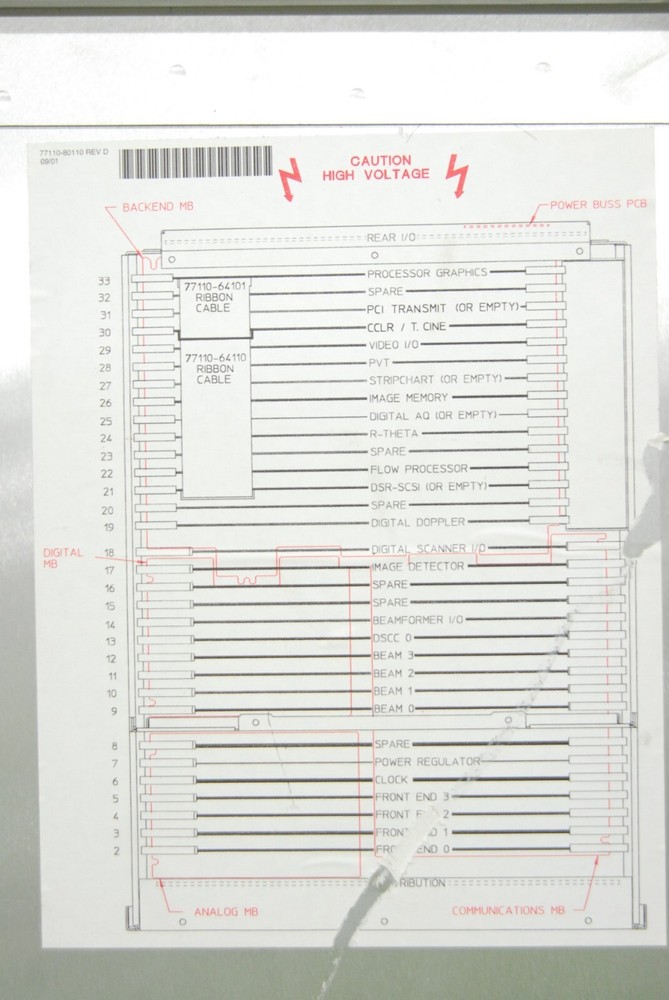 77110-80110 REV D
09/01
CAUTION
HIGH VOLTAGE
BACKEND MB
POWER BUSS PCB
REAR I/O
33 PROCESSOR GRAPHICS
77110-64101
RIBBON
CABLE
32 SPARE
31 PCI TRANSMIT (OR EMPTY)
30 CCLR / T. CINE
29 VIDEO I/O
77110-64110
RIBBON
CABLE
28 PVT
27 STRIPCHART (OR EMPTY)
26 IMAGE MEMORY
25 DIGITAL AQ (OR EMPTY)
24 R-THETA
23 SPARE
22 FLOW PROCESSOR
21 DSR-SCSI (OR EMPTY)
20 SPARE
19 DIGITAL DOPPLER
DIGITAL
MB
18 DIGITAL SCANNER I/O
17 IMAGE DETECTOR
16 SPARE
15 SPARE
14 BEAMFORMER I/O
13 DSCC 0
12 BEAM 3
11 BEAM 2
10 BEAM 1
9 BEAM 0
8 SPARE
7 POWER REGULATOR
6 CLOCK
5 FRONT END 3
4 FRONT 2
3 1
2 END 0
RIBUTION
ANALOG MB
COMMUNICATIONS MB